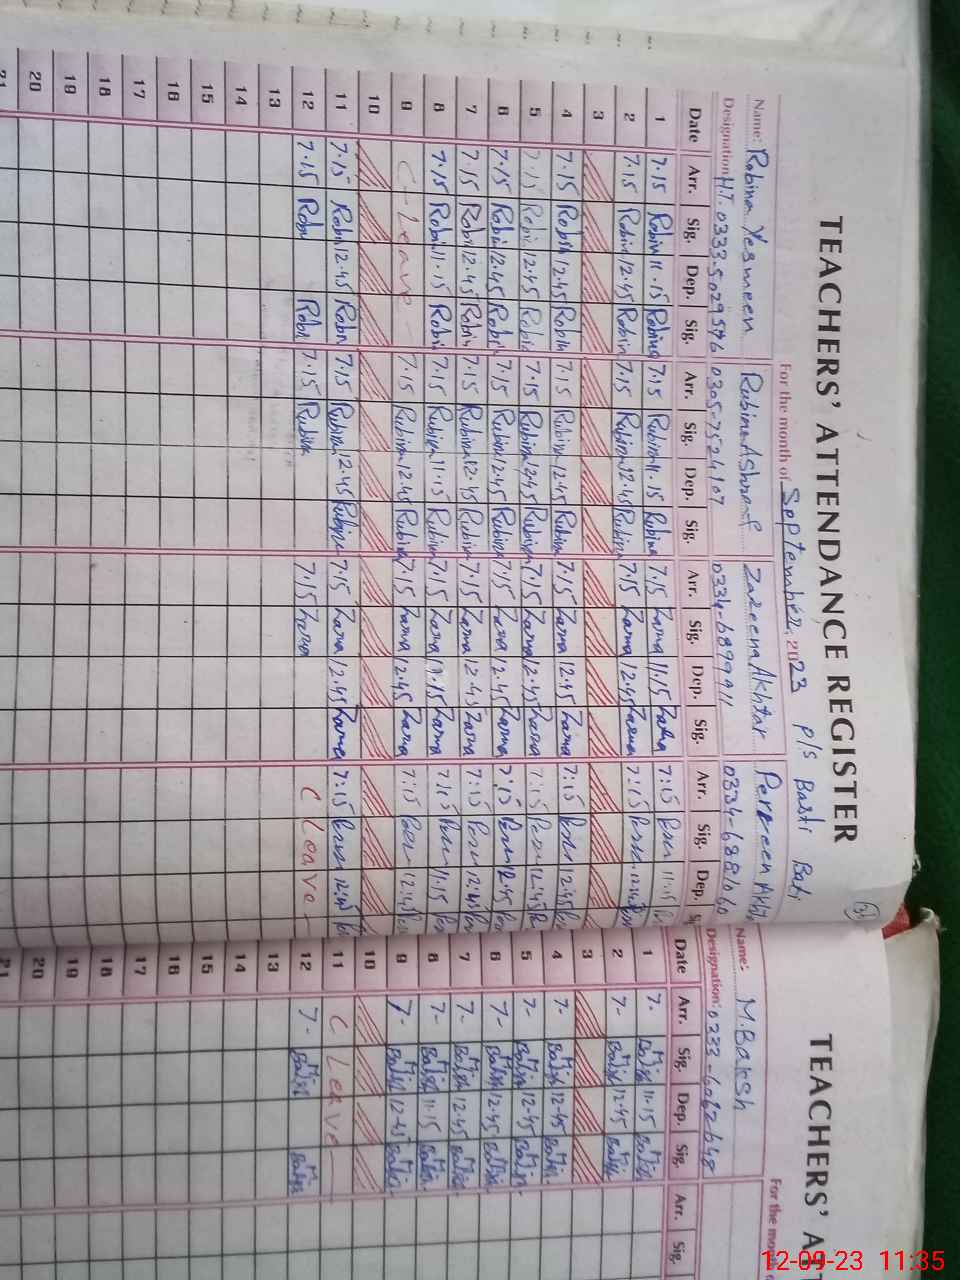 TEACHERS' ATTENDANCE REGISTER
For the month of September, 2023 P/S Basti Bati
Name: Robina Yesmeen Rubina Ashraf Zareena Akhtar Perveen Akht
Designation: H.T. 0333-5029576 0305-7524107 0334-6899911 0334-6881060
Date Arr. Sig. Dep. Sig. Arr. Sig. Dep. Sig. Arr. Sig. Dep. Sig. Arr. Sig. Dep. S
1 7.15 Robin 11.15 Robina 7.15 Rubina 11.15 Rubina 7.15 Zarna 11.15 Zarna 7:15 11.15
2 7.15 Robin 12.45 Robin 7.15 Rubina 12.45 Rubina 7.15 Zarna 12.45 Zarna 7:15 12.45
3
4 7.15 Robin 12.45 Robin 7.15 Rubina 12.45 Rubina 7.15 Zarna 12.45 Zarna 7:15 12.45
5 7.15 Robin 12.45 Robin 7.15 Rubina 12.45 Rubina 7.15 Zarna 12.45 Zarna 7:15 12.45
6 7.15 Robin 12.45 Robin 7.15 Rubina 12.45 Rubina 7.15 Zarna 12.45 Zarna 7:15 12.45
7 7.15 Robin 12.45 Robin 7.15 Rubina 12.45 Rubina 7.15 Zarna 12.45 Zarna 7:15 12.45
8 7.15 Robin 11.15 Robin 7.15 Rubina 11.15 Rubina 7.15 Zarna 11.15 Zarna 7:15 11.15
9 C- Leave - 7.15 Rubina 12.45 Rubina 7.15 Zarna 12.45 Zarna 7:15 12.45
10
11 7.15 Robin 12.45 Robin 7.15 Rubina 12.45 Rubina 7.15 Zarna 12.45 Zarna 7:15 12.45
12 7.15 Robin Robin 7.15 Rubina 7.15 Zarna C Leave -
13
14
15
16
17
18
19
20
21
TEACHERS' AT
For the month o
Name: M. Baksh
Designation: 0333-6062648
Date Arr. Sig. Dep. Sig. Arr. Sig.
1 7- M. Baksh 11.15 M. Baksh
2 7- M. Baksh 12.45 M. Baksh
3
4 7- M. Baksh 12-45 M. Baksh
5 7- M. Baksh 12-45 M. Baksh
6 7- M. Baksh 12.45 M. Baksh
7 7- M. Baksh 12.45 M. Baksh
8 7- M. Baksh 11.15 M. Baksh
9 7- M. Baksh 12-45 M. Baksh
10
11 C Leave -
12 7- M. Baksh M. Baksh
13
14
15
16
17
18
19
20
21
12-09-23 11:35